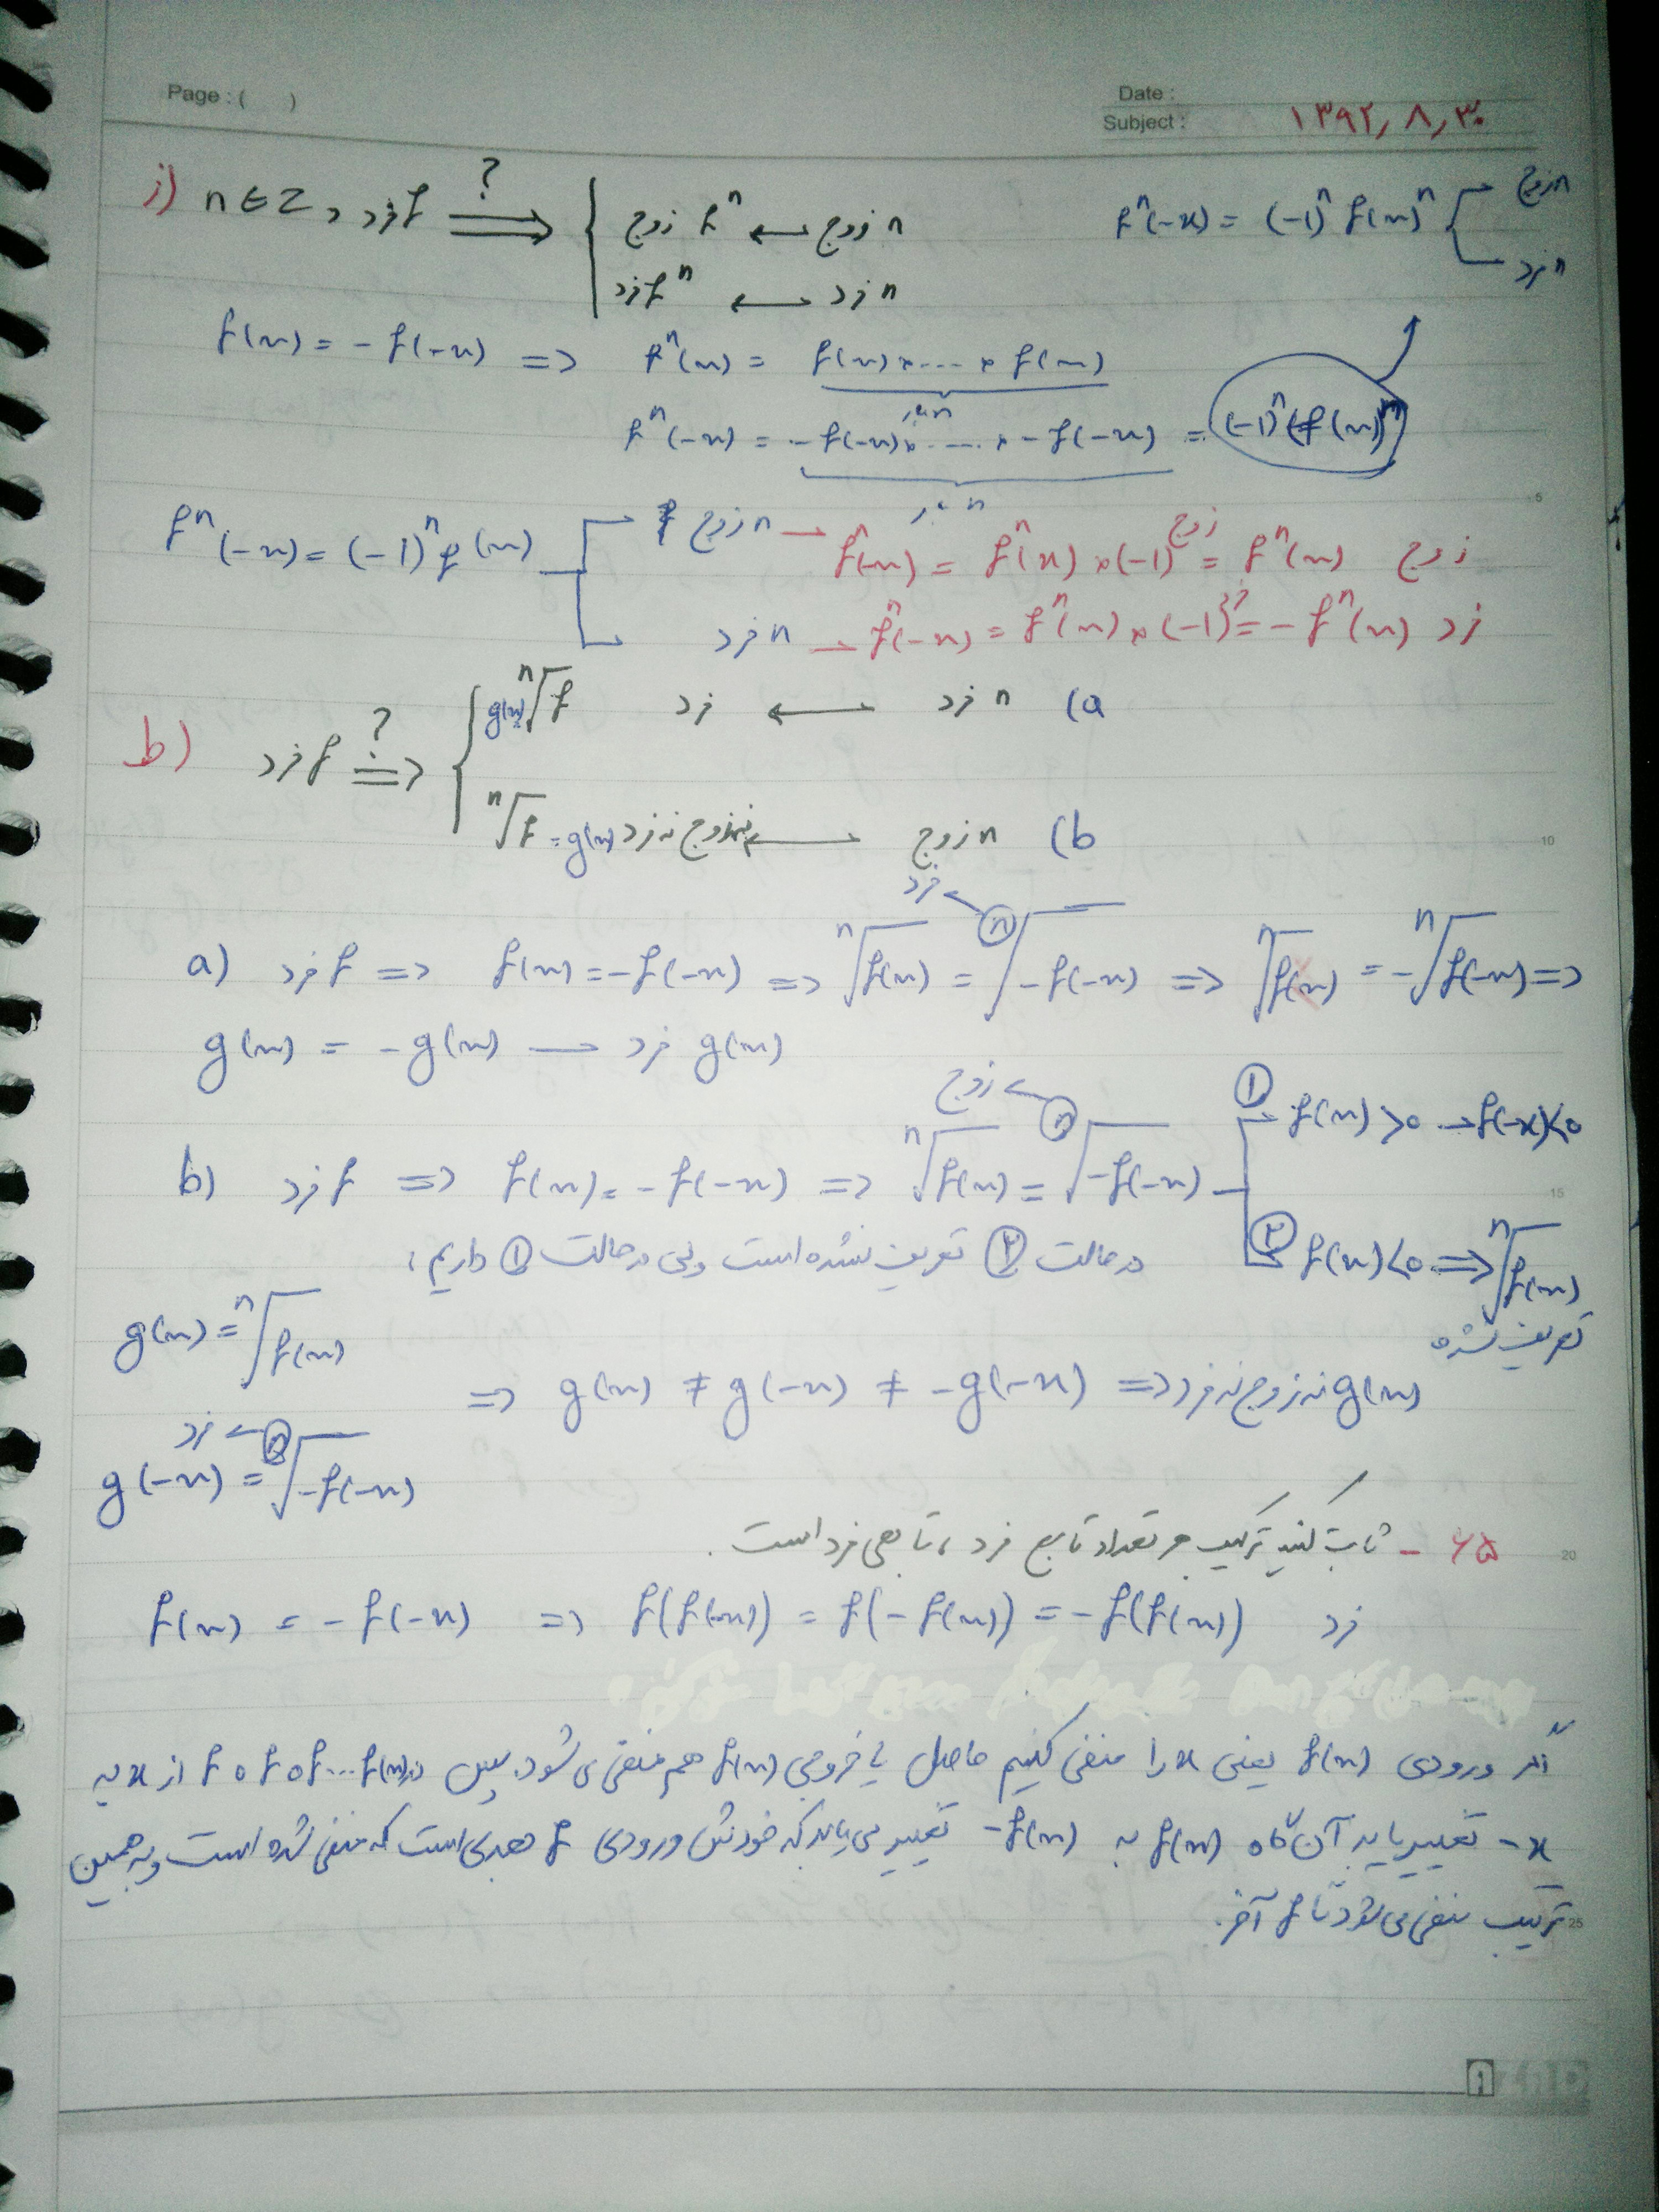 Page : ( )
Date :
Subject : ۱۳۹۲٫۸٫۳۰
j) n∈Z , فرد f ⟹? { زوج fⁿ ← زوج n
فرد fⁿ ← فرد n
fⁿ(-x) = (-1)ⁿ f(x)ⁿ زوج n
فرد n
f(x) = -f(-x) => fⁿ(x) = f(x)×....×f(x)
n بار
fⁿ(-x) = -f(-x)×.....×-f(-x) = (-1)ⁿ(f(x))ⁿ
n بار
fⁿ(-x) = (-1)ⁿ f(x) زوج n → fⁿ(-x) = fⁿ(x)×(-1)^زوج = fⁿ(x) زوج
فرد n → fⁿ(-x) = fⁿ(x)×(-1)^فرد = -fⁿ(x) فرد
b) فرد f ⟹? { g(x) ⁿ√f فرد ← فرد n (a
ⁿ√f = g(x) نه زوج نه فرد ← زوج n (b
a) فرد f => f(x) = -f(-x) => ⁿ√f(x) = ⁿ√-f(-x) => ⁿ√f(x) = -ⁿ√f(-x) =>
فرد
g(x) = -g(x) → فرد g(x)
زوج
b) فرد f => f(x) = -f(-x) => ⁿ√f(x) = ⁿ√-f(-x) ① f(x)>0 → f(-x)<0
② f(x)<0 => ⁿ√f(x)
تعریف نشده
در حالت ② تعریف نشده است ولی در حالت ① داریم:
g(x) = ⁿ√f(x)
=> g(x) ≠ g(-x) ≠ -g(-x) => نه زوج نه فرد g(x)
فرد
g(-x) = ⁿ√-f(-x)
۶۵ - ثابت کنید ترکیب هر تعداد تابع فرد، تابعی فرد است.
f(x) = -f(-x) => f(f(-x)) = f(-f(x)) = -f(f(x)) فرد
اگر ورودی f(x) یعنی x را منفی کنیم حاصل یا خروجی f(x) هم منفی می شود. پس در f∘f∘f...f(x) از x به
-x تغییر یابد آن گاه f(x) به -f(x) تغییر می یابد که خودش ورودی f بعدی است که منفی شده است و به همین
ترتیب منفی می شود تا f آخر.
5
10
15
20
25
AZAD